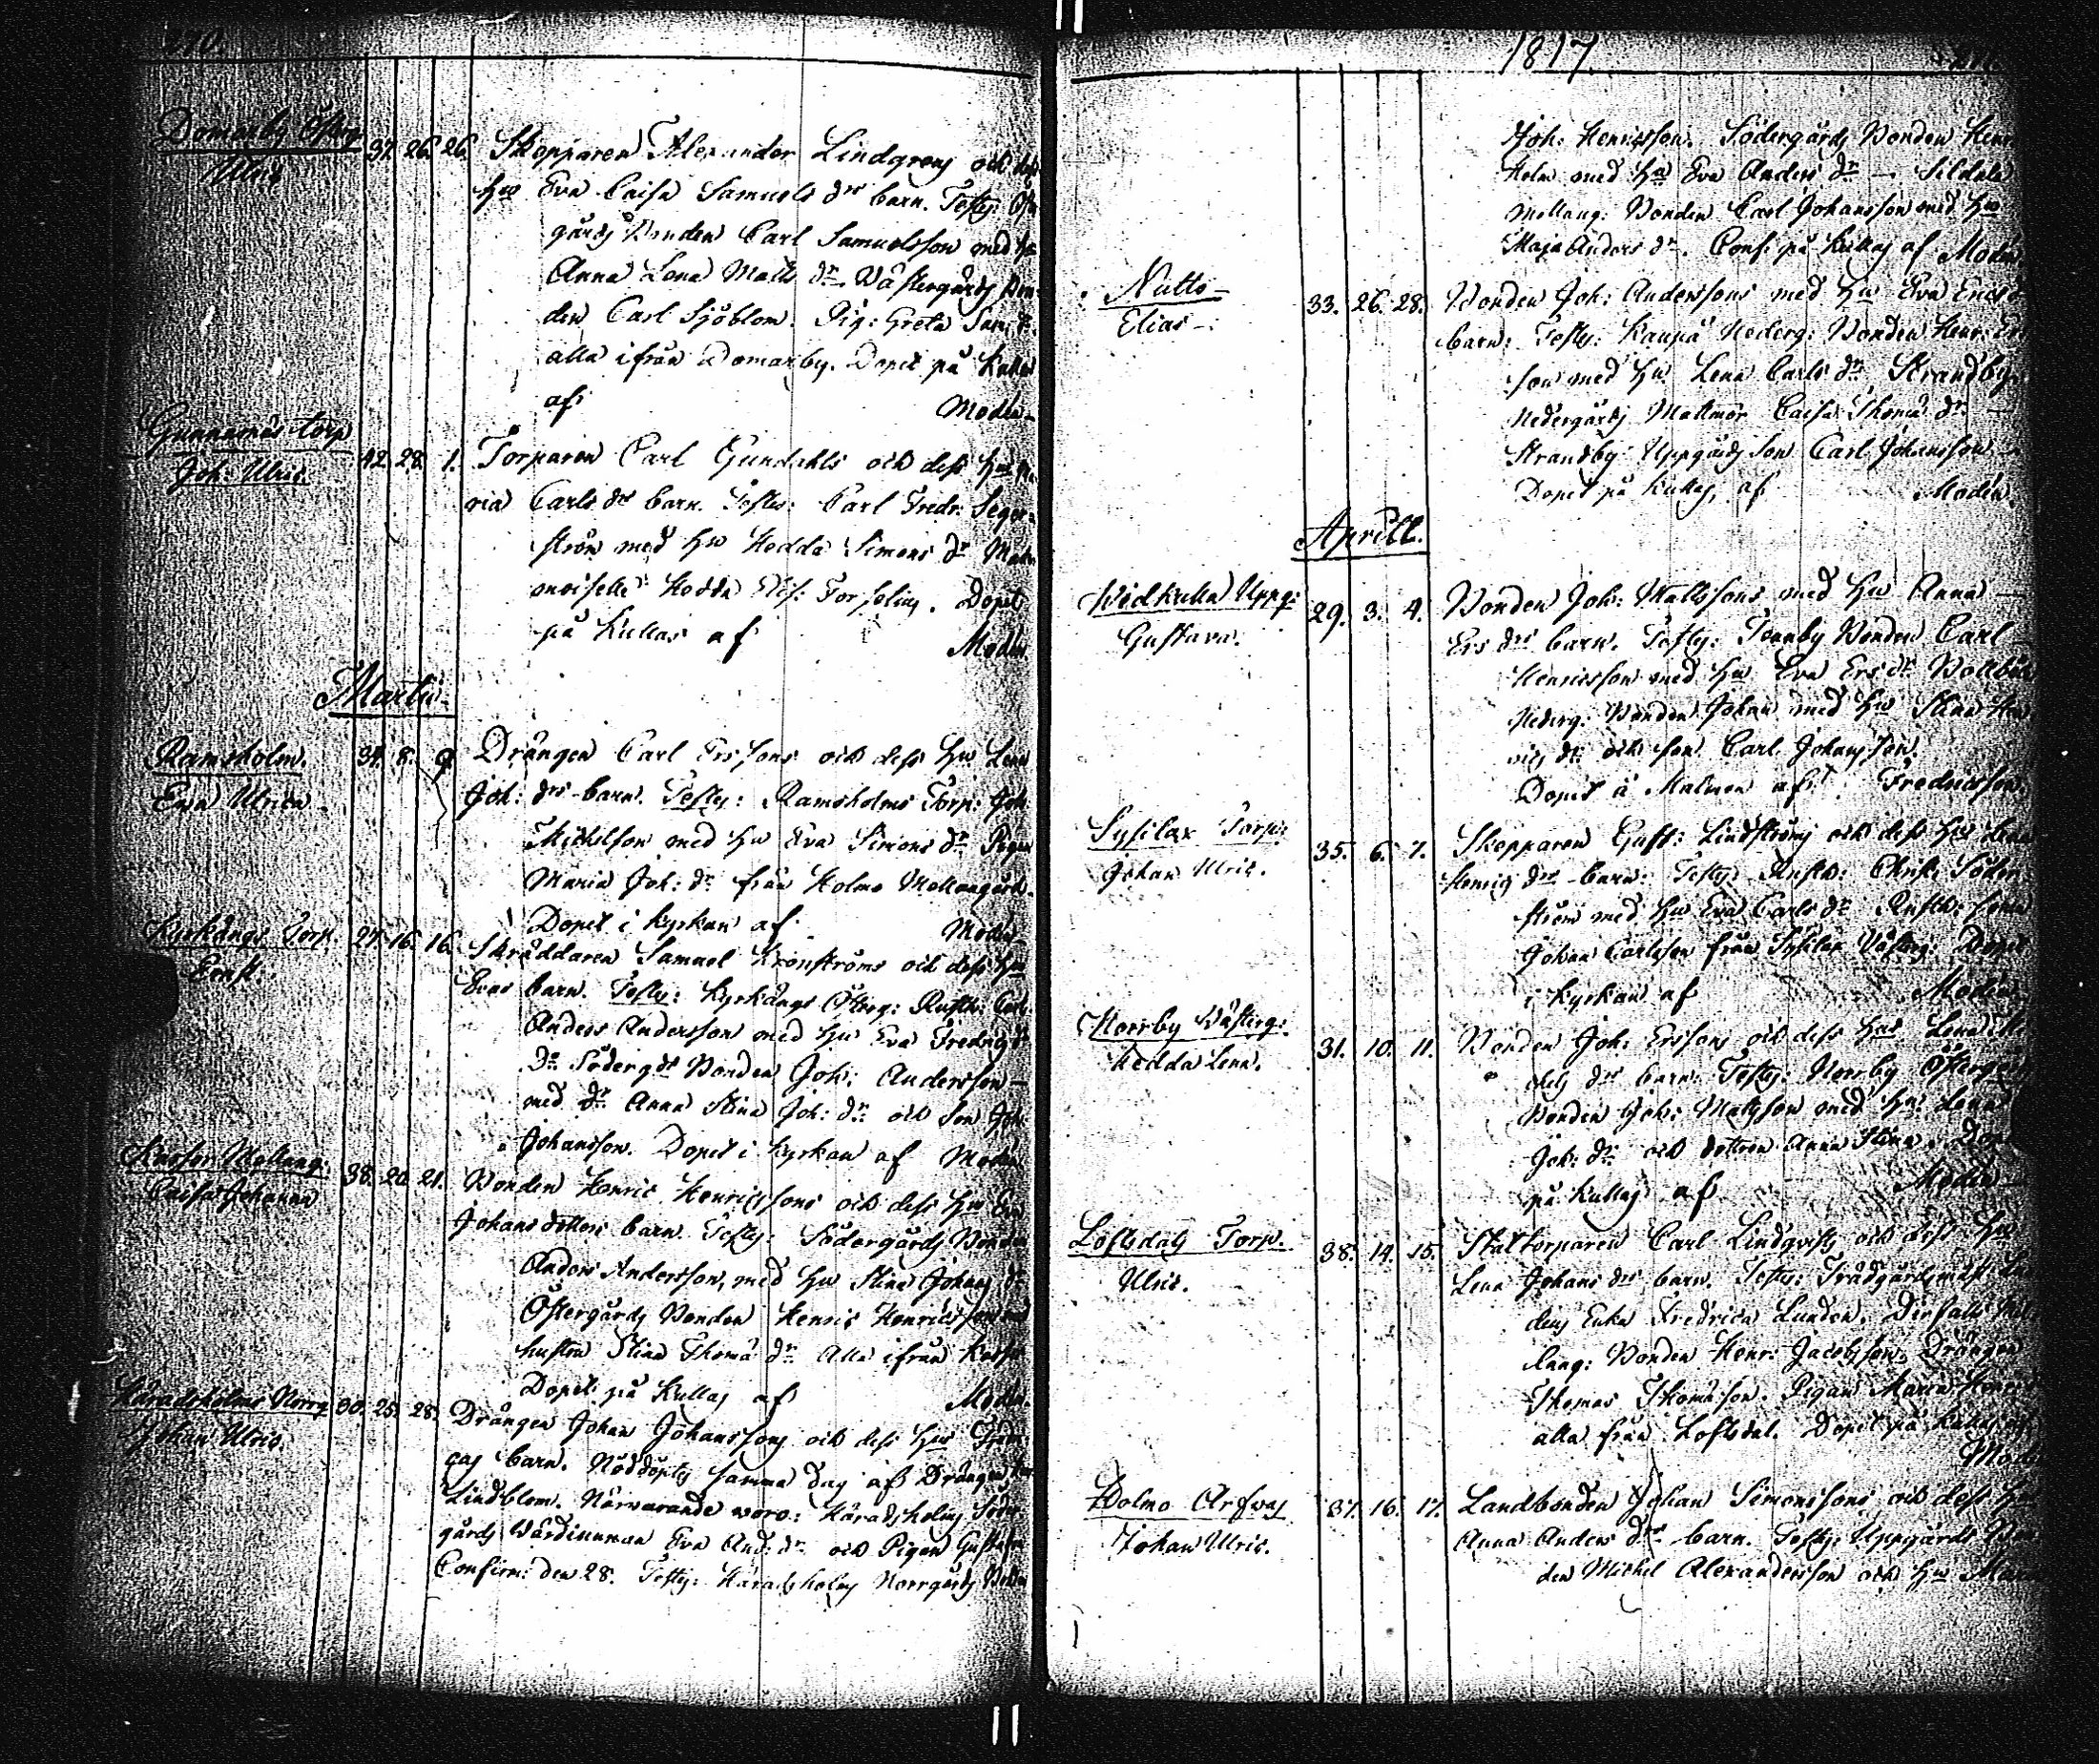 270
Domarby Österg:
Ulric
37. 26. 26. Skepparen Alexander Lindgrens och dess
Hu Eva Caisa Samuels drs barn. Testes: Öster
gårds Bonden Carl Samuelsson med Hu
Anna Lena Matts dr. Västergårds Bon
den Carl Sjöblom. Pig: Greta Sam: dr.
alla ifrån Domarby. Döpet på Kullas
af Modin.
Gunnarnäs torp
Joh: Ulric.
42. 28. 1. Torparen Carl Gundahls och dess Hu Ma
ria Carls drs barn. Testes: Carl Fredr: Seger-
ström med Hu Hedda Simons dr Mam
moiselle Hedda Forselius. Döpet
på Kullas af Modin
Martii
Ramsholm.
Eva Ulrica.
34. 8. 9. Drängen Carl Erssons och dess Hu Lena
Joh: drs barn. Testes: Ramsholms Torp: Joh
Michelson med Hu Eva Simons dr Pigan
Maria Joh: dr från Holmo Mellangård.
Döpet i Kyrkan af Modin
Kyrkängs Torp.
Ernst.
27. 16. 16. Skräddaren Samuel Kronströms och dess Hu
Evas barn. Testes: Kyrkängs Österg: Rusth:
Anders Andersson med Hu Eva Fredrics
dr Södergds Bonden Joh: Andersson
med dr Anna Stina Joh: dr och Son Joh:
Johansson. Döpet i Kyrkan af Modin
Mellang:
Caisa Johanna
38. 20. 21. Bonden Henric Henricssons och dess Hu Eva
Johans dotters barn. Testes: Södergårds Bonden
Anders Andersson, med Hu Stina Johans dr
Östergårds Bonden Henric Henricsson med
hustru Stina Thomæ dr Alla ifrån
Döpet på Kullas af Modin.
Häradsholms Norrg
Johan Ulric.
30. 25. 28. Drängen Johan Johanssons och dess Hus
barn. Nöddöptes samma dag af Drängen
Lindblom. Närvarande voro: Häradsholms Söder
gårds Värdinnan Eva And: dr och Pigan Gustafva
Confirm: den 28. Testes: Häradsholms Norrgårds Bonden
1817.
Joh: Henricsson. Södergårds Bonden Henr
Holm med Hu Eva Anders dr — Sildala
Mellang: Bonden Carl Johansson med Hu
Maja Anders dr. Conf: på Kullas af Modin
Nutto —
Elias —
33. 26. 28. Bonden Joh: Anderssons med Hu Eva Erics d
barn: Testes: Kaupå Nederg: Bonden Henr:
son med Hu Lena Carls dr Strandby
Nedergårds Matmor Caisa Thomæ dr —
Strandby Uppgårds Son Carl Johansson
Döpet på Kullas, af Modin.
Aprill.
Widkulla Uppg:
Gustava.
29. 3. 4. Bonden Joh: Mattssons med Hu Anna —
Ers drs barn. Testes: Bonden Carl
Henricsson med Hu Eva Ers dr
Nederg: Bonden Johan med Hu Stina Hen
rics dr och Son Carl Johansson.
Döpet å Malmen af Fredricsson.
Sysilax Torp:
Johan Ulric.
35. 6. 7. Skepparen Gust: Lindströms och dess Hu Lena
Henrics drs barn: Testes: Rusth: Söder
ström med Hu Eva Carls dr Rusth: Sonen
Johan Carlsson från Sysilax Västerg: Döpet
i Kyrkan af Modin.
Norrby Västerg:
Hedda Lena.
31. 10. 11. Bonden Joh: Erssons och dess Hus Lena Mi
chels drs barn. Testes: Norrby Östergå
Bonden Joh: Matsson med Hu Lena
Joh: dr och dottren Anna Stina. Döpet
på Kullas af Modin
Loftsdals Torp.
Ulric.
38. 14. 15. Stattorparen Carl Lindqvists och dess Hu
Lena Johans drs barn. Testes: Trädgårdsmäst:
Enka Fredrica Lunden.
lang: Bonden Henr: Jacobsson, Drängen
Thomas Thomæson. Pigan Maria Henrics
alla från Loftsdal. Döpet på Kullas af
Modin
Holmo Arfwas
Johan Ulric.
37. 16. 17. Landbonden Johan Simonssons och dess H
Anna Anders drs barn. Testes: Uppgårds Bon
den Michel Alexandersson och Hu Mar